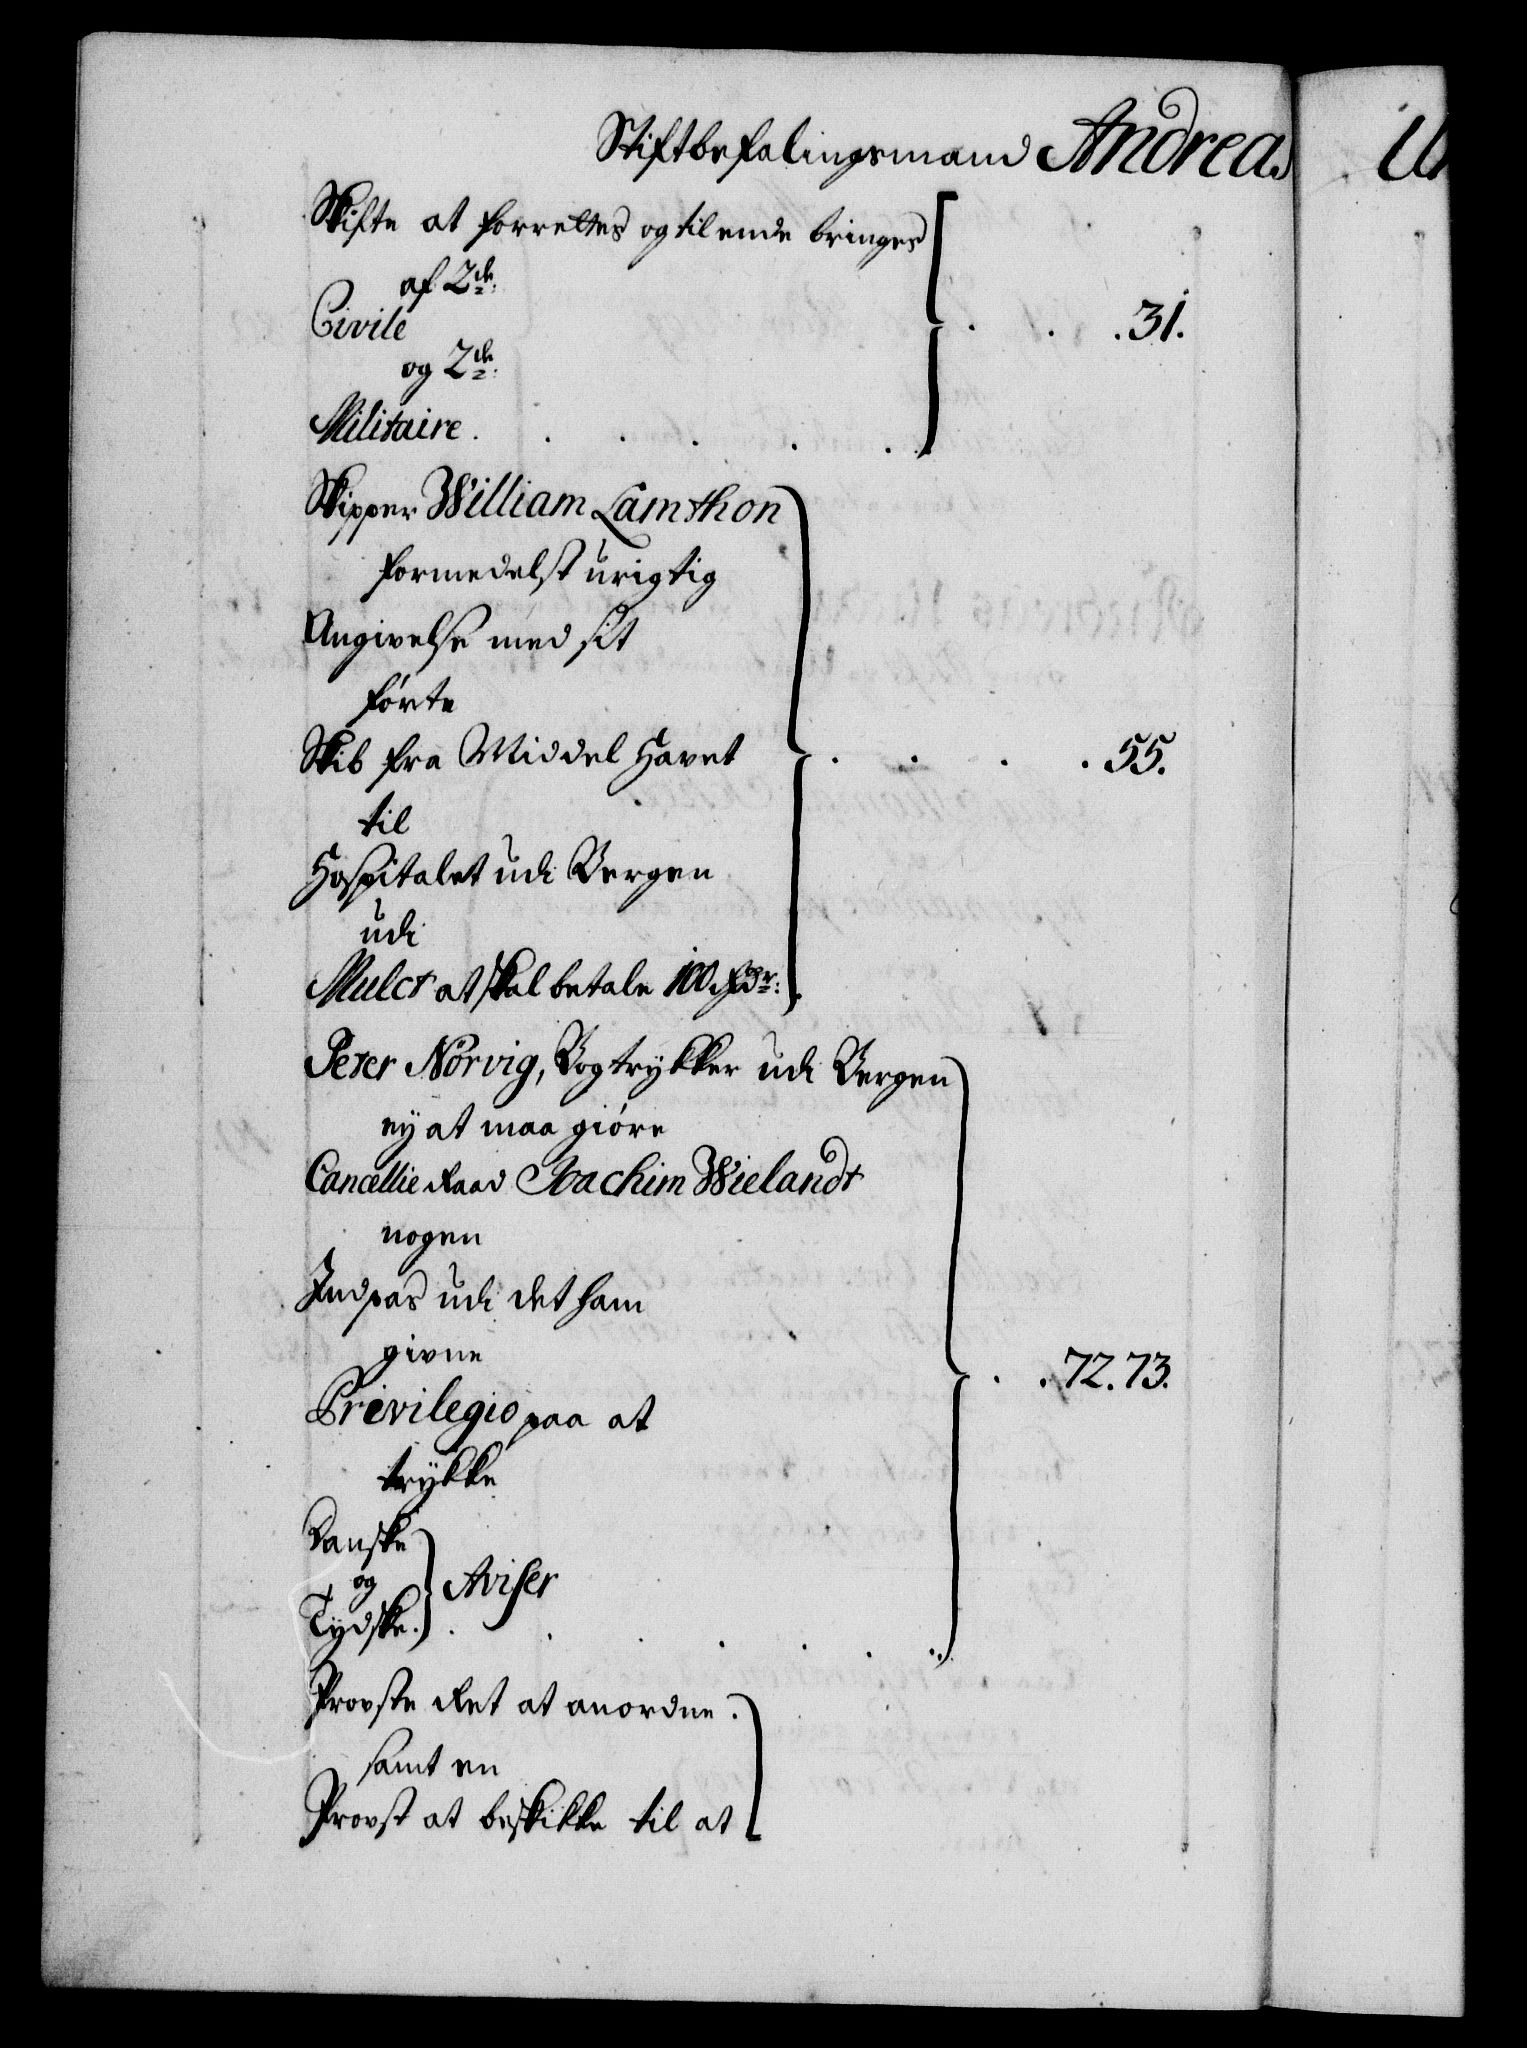 Stiftbefalingsmand Andreas
Skifte at forrettes og til ende bringes
af 2de:
Civile
og 2de:
Militaire . . . . . . . . . 31.
Skipper William Lamthon
formedelst urigtig
Angivelse med sit
førte
Skib fra Middel Havet . . . . 55.
til
Hospitalet udi Bergen
udi
Mulct at skal betale 100 Rdr:
Peter Nörvig, Bogtrykker udi Bergen
ey at maa giöre
Cancellie Raad Joachim Wielandt
nogen
Indpas udi det ham
givne . . 72. 73.
Privilegio paa at
trykke
Danske
og Aviser
Tydske. . . . . . .
Provste Ret at anordne.
samt en
Provst at beskikke til at